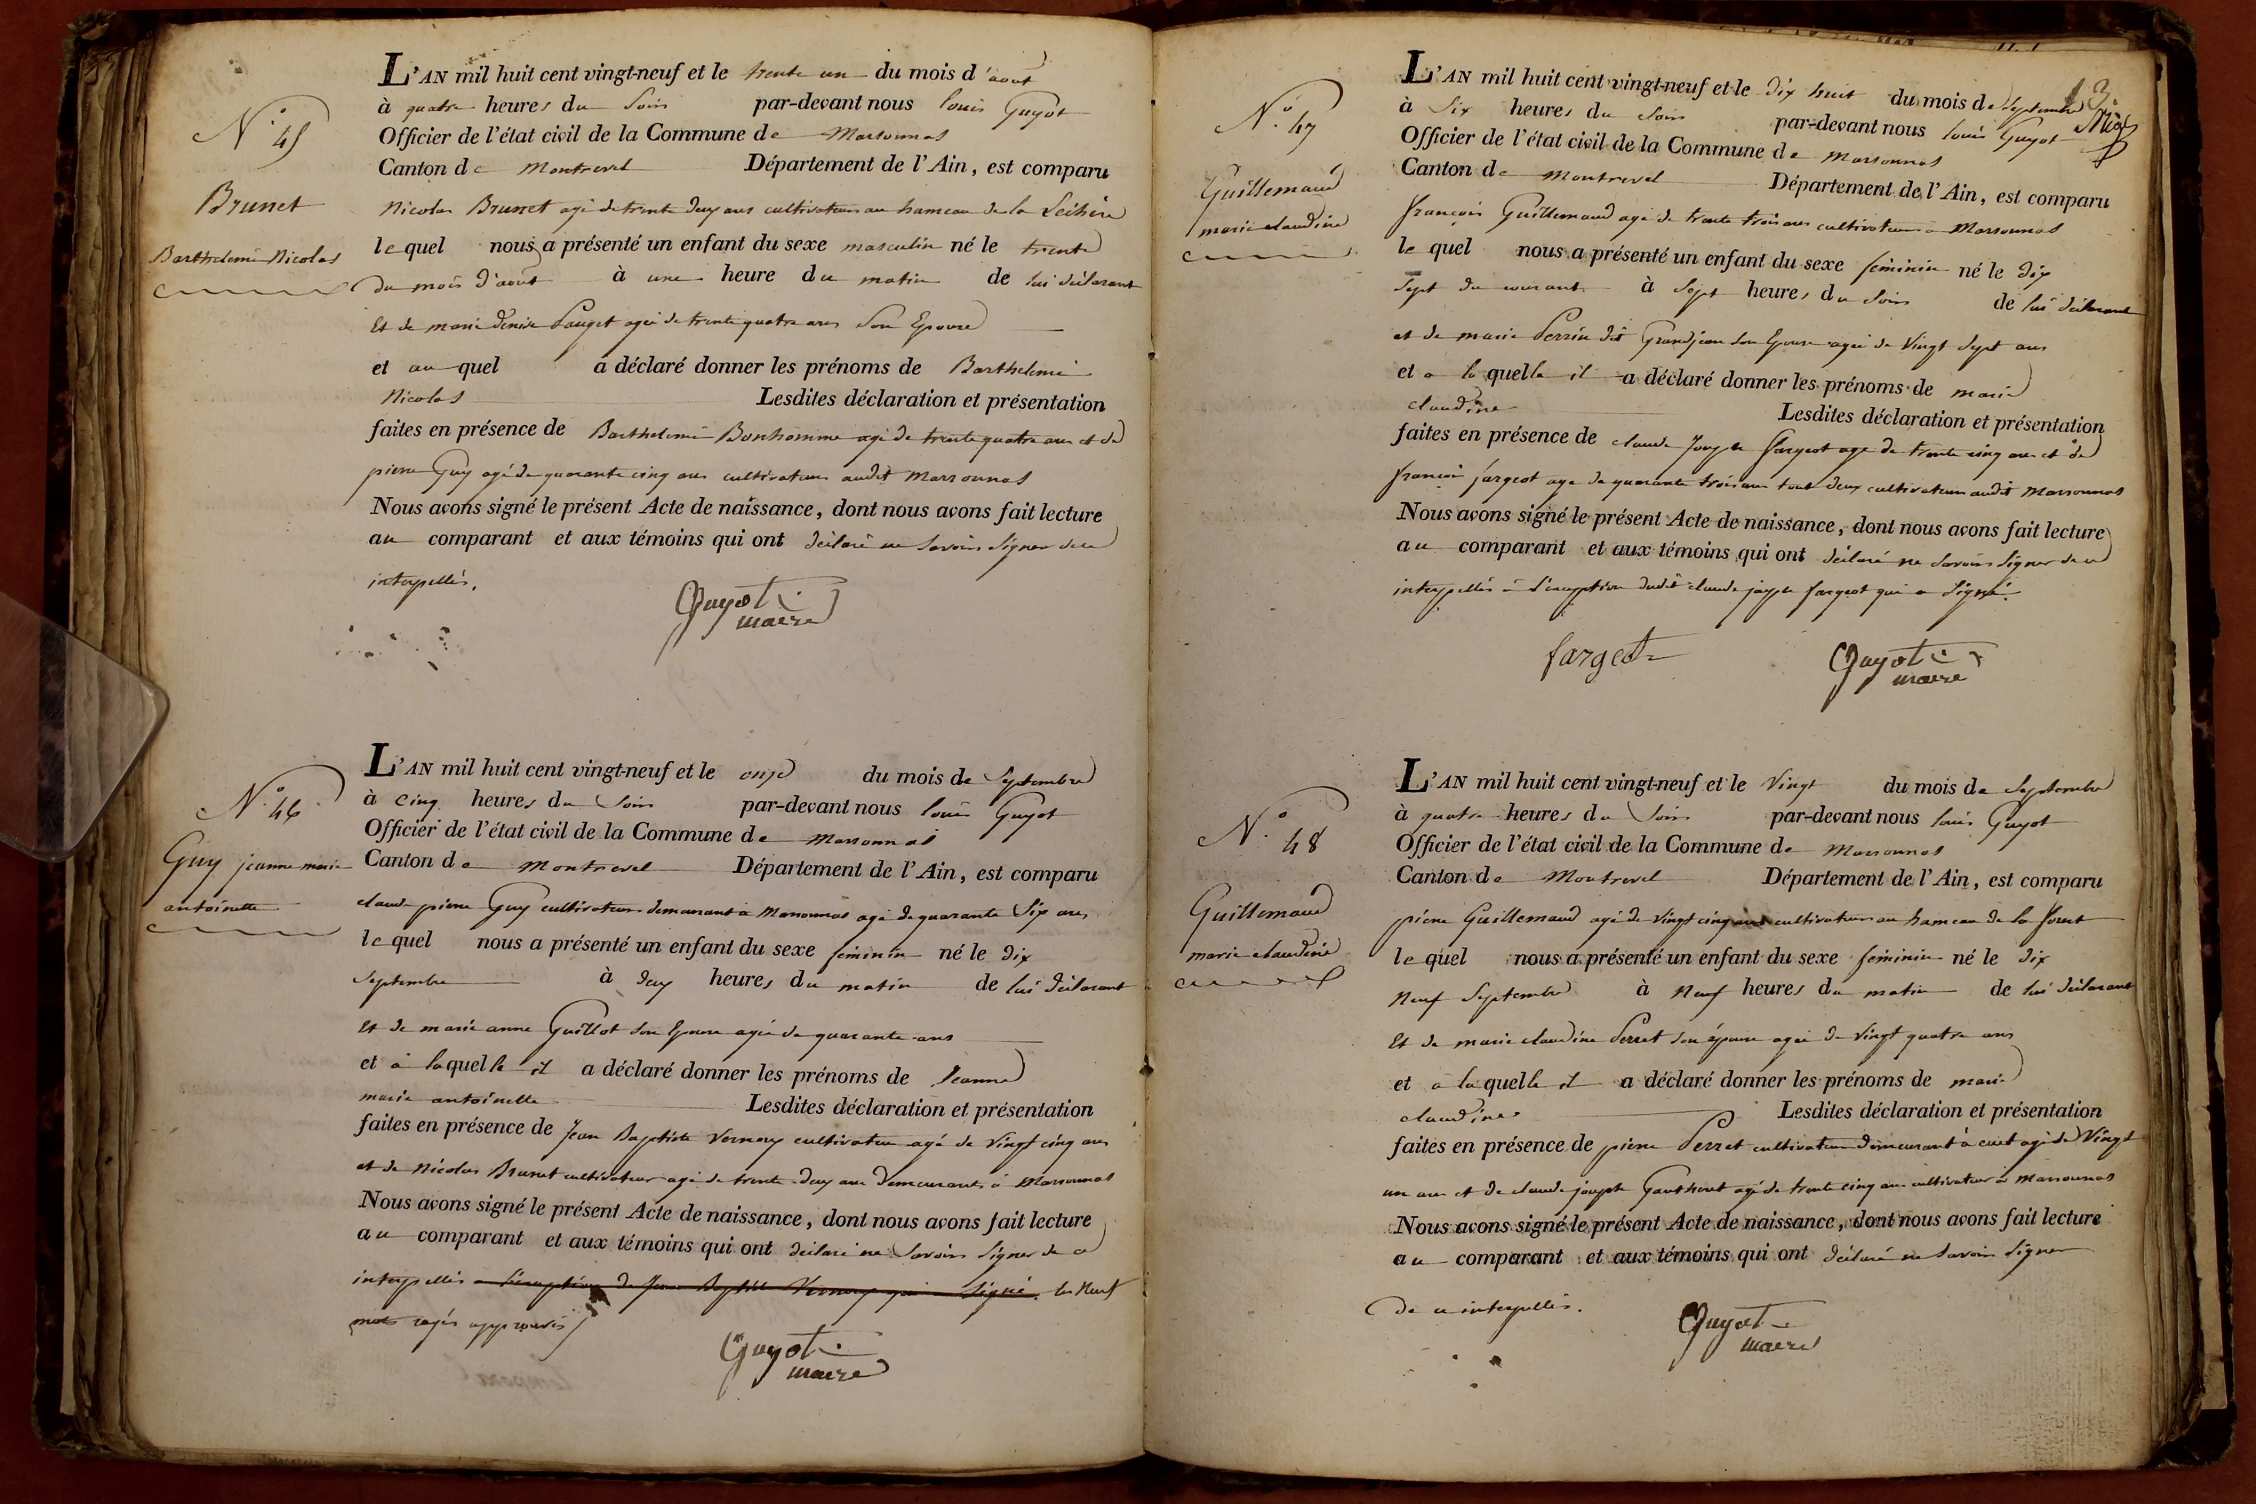 N.° 45
Brunet
Barthelemi Nicolas
L'AN mil huit cent vingt-neuf et le trente un du mois d'aout
à quatre heures du soir par-devant nous louis Guyot
Officier de l'état civil de la Commune de Marsonnas
Canton de Montrevel Département de l'Ain, est comparu
Nicolas Brunet agé de trente deux ans cultivateur au hameau de la
lequel nous a présenté un enfant du sexe masculin né le trente
du mois d'aout à une heure du matin de lui déclarant
Et de marie denise Pauget agée de trente quatre ans son Epouse
et au quel a déclaré donner les prénoms de Barthelemi
Nicolas Lesdites déclaration et présentation
faites en présence de Barthelemi Bonhomme agé de trente quatre ans et de
pierre Guy agé de quarante cinq ans cultivateurs audit Marsonnas
Nous avons signé le présent Acte de naissance, dont nous avons fait lecture
au comparant et aux témoins qui ont déclaré ne savoir signer de ce
interpellés.
Guyot
maire
N.° 46
Guy jeanne marie
antoinette
L'AN mil huit cent vingt-neuf et le onze du mois de Septembre
à cinq heures du soir par-devant nous louis Guyot
Officier de l'état civil de la Commune de Marsonnas
Canton de Montrevel Département de l'Ain, est comparu
claude pierre Guy cultivateur demeurant à Marsonnas agé de quarante Six ans
lequel nous a présenté un enfant du sexe féminin né le dix
Septembre à deux heures du matin de lui déclarant
Et de marie anne Guillot son Epouse agée de quarante ans
et à laquelle il a déclaré donner les prénoms de Jeanne
marie antoinette Lesdites déclaration et présentation
faites en présence de Jean Baptiste Vernoux cultivateur agé de vingt cinq ans
et de Nicolas Brunet cultivateur agé de trente deux ans demeurants à Marsonnas
Nous avons signé le présent Acte de naissance, dont nous avons fait lecture
au comparant et aux témoins qui ont déclaré ne savoir signer de ce
interpellés a l'exception de Jean Baptiste Vernoux qui a signé. les neuf
mots rayés approuvés
Guyot
maire
N.° 47
Guillemaud
marie claudine
13
L'AN mil huit cent vingt-neuf et le dix huit du mois de Septembre
à Six heures du soir par-devant nous louis Guyot
Officier de l'état civil de la Commune de Marsonnas
Canton de Montrevel Département de l'Ain, est comparu
françois Guillemaud agé de trente trois ans cultivateur à Marsonnas
lequel nous a présenté un enfant du sexe féminin né le dix
Sept du courant à Sept heures du soir de lui déclarant
et de marie Perrin dit Grandjean son Epouse agée de vingt sept ans
et a la quelle il a déclaré donner les prénoms de marie
claudine Lesdites déclaration et présentation
faites en présence de claude Joseph fargeot agé de trente cinq ans et de
françois fargeot agé de quarante trois ans tout deux cultivateurs audit Marsonnas
Nous avons signé le présent Acte de naissance, dont nous avons fait lecture
au comparant et aux témoins qui ont déclaré ne savoir signer de ce
interpellés à l'exception dudit claude joseph fargeot qui a signé.
farget
Guyot
maire
N.° 48
Guillemaud
marie claudine
L'AN mil huit cent vingt-neuf et le vingt du mois de Septembre
à quatre heures du soir par-devant nous louis Guyot
Officier de l'état civil de la Commune de Marsonnas
Canton de Montrevel Département de l'Ain, est comparu
pierre Guillemaud agé de vingt cinq ans cultivateur au hameau de la foret
lequel nous a présenté un enfant du sexe féminin né le dix
Neuf Septembre à Neuf heures du matin de lui déclarant
Et de marie claudine Perret son épouse agée de vingt quatre ans
et a la quelle il a déclaré donner les prénoms de marie
claudine Lesdites déclaration et présentation
faites en présence de pierre Perret cultivateur demeurant à cuet agé de vingt
un ans et de claude joseph Gauthout agé de trente cinq ans cultivateur à Marsonnas
Nous avons signé le présent Acte de naissance, dont nous avons fait lecture
au comparant et aux témoins qui ont déclaré ne savoir signer
de ce interpellés.
Guyot
maire